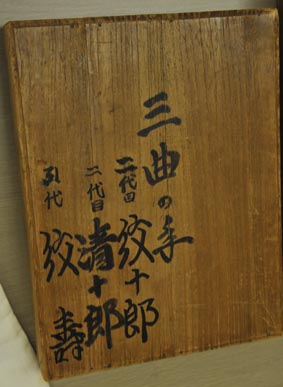 三曲の手
二代目 紋十郎
二代目 清十郎
紋壽